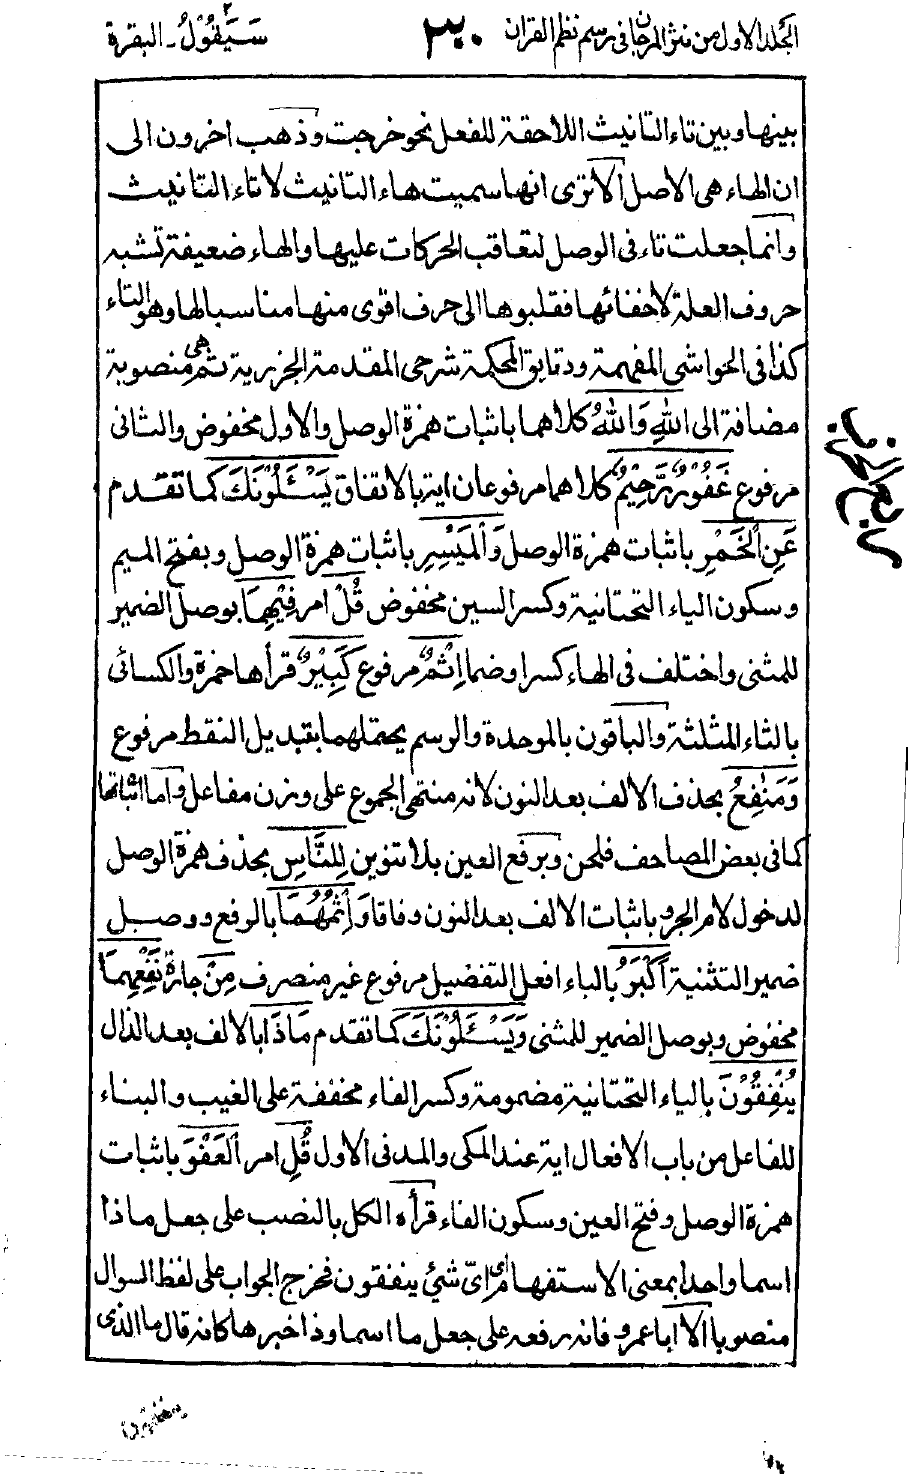 الجلد الاول من نثر المرجان فى رسم نظم القران ٣٠٠ سَيَقُوْلُ ٢ - البقرة
بينها وبين تاء التانيث اللاحقة للفعل نحو خرجت وذهب اخرون الى
ان الهاء هى الاصل الا ترى انها سميت هاء التانيث لا تاء التانيث
وانما جعلت تاء فى الوصل لتعاقب الحركات عليها والهاء ضعيفة تشبه
حروف العلة لاخفائها فقلبوها الى حرف اقوى منها مناسبا لها وهو التاء
كذا فى الحواشى المفهمة ودقايق المحكمة شرحى المقدمة الجزرية ثم هى منصوبة
مضافة الى اللهِ وَاللهُ كلاهما باثبات همزة الوصل والاول مخفوض والثانى
مرفوع غَفُوْرٌ رَّحِيْمٌ كلاهما مرفوعان اية بالاتفاق يَسْـَٔلُوْنَكَ كما تقدم
عَنِ الْخَمْرِ باثبات همزة الوصل وَالْمَيْسِرِ باثبات همزة الوصل وبفتح الميم
وسكون الياء التحتانية وكسر السين مخفوض قُلْ امر فِيْهِمَا بوصل الضمير
للمثنى واختلف فى الهاء كسرا وضما اِثْمٌ مرفوع كَبِيْرٌ قرأها حمزة والكسائى
بالثاء المثلثة والباقون بالموحدة والرسم يحتملهما بتبديل النقط مرفوع
وَمَنٰفِعُ بحذف الالف بعد النون لانه منتهى الجموع على وزن مفاعل واما اثباتها
كما فى بعض المصاحف فلحن وبرفع العين بلا تنوين لِلنَّاسِ بحذف همزة الوصل
لدخول لام الجر وباثبات الالف بعد النون وفاقا وَاِثْمُهُمَا بالرفع ووصل
ضمير التثنية اَكْبَرُ بالباء افعل التفضيل مرفوع غير منصرف مِنْ جارة نَفْعِهِمَا
مخفوض وبوصل الضمير للمثنى وَيَسْـَٔلُوْنَكَ كما تقدم مَاذَا بالالف بعد الذال
يُنْفِقُوْنَ بالياء التحتانية مضمومة وكسر الفاء مخففة على الغيب والبناء
للفاعل من باب الافعال اية عند المكى والمدنى الاول قُلِ امر الْعَفْوَ باثبات
همزة الوصل وفتح العين وسكون الفاء قرأه الكل بالنصب على جعل ماذا
اسما واحدا بمعنى الاستفهام اى اىّ شئ ينفقون فخرج الجواب على لفظ السوال
منصوبا الا ابا عمرو فانه رفعه على جعل ما اسما وذا خبرها كانه قال ما الذى
ينفقون